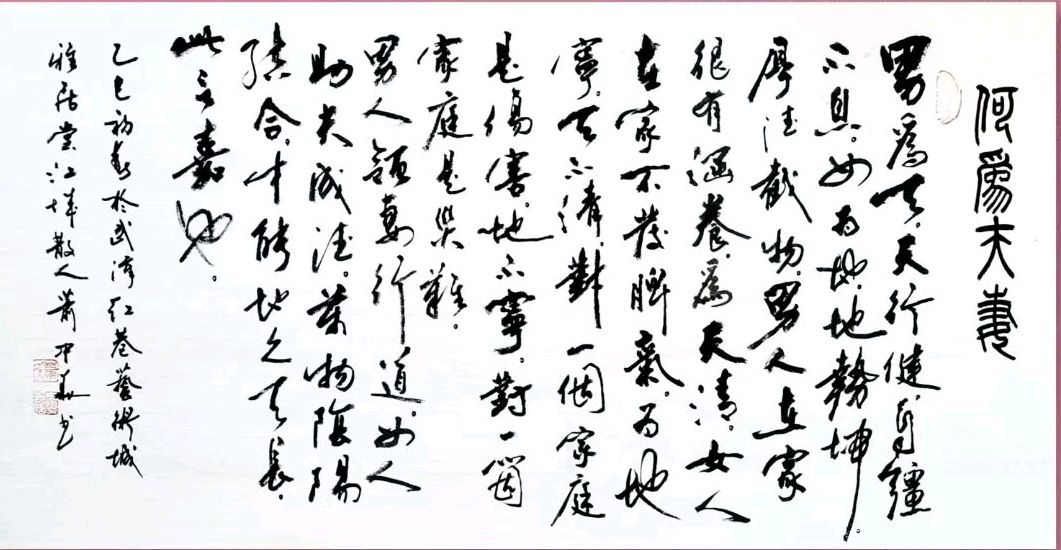 何為夫妻
男為天。天行健。自彊
不息。女为地。地勢坤。
厚德載物。男人在家
很有涵養。為天清。女人
在家不發脾氣。为地
寧。天不清。對一個家庭
是傷害。地不寧。對一箇
家庭是災難。
男人領妻行道。女人
助夫成德。萬物陰陽
結合。才能地久天長。
此言嘉也。
乙巳初春於武漢紅巷藝術城
雅居堂江城散人蕭